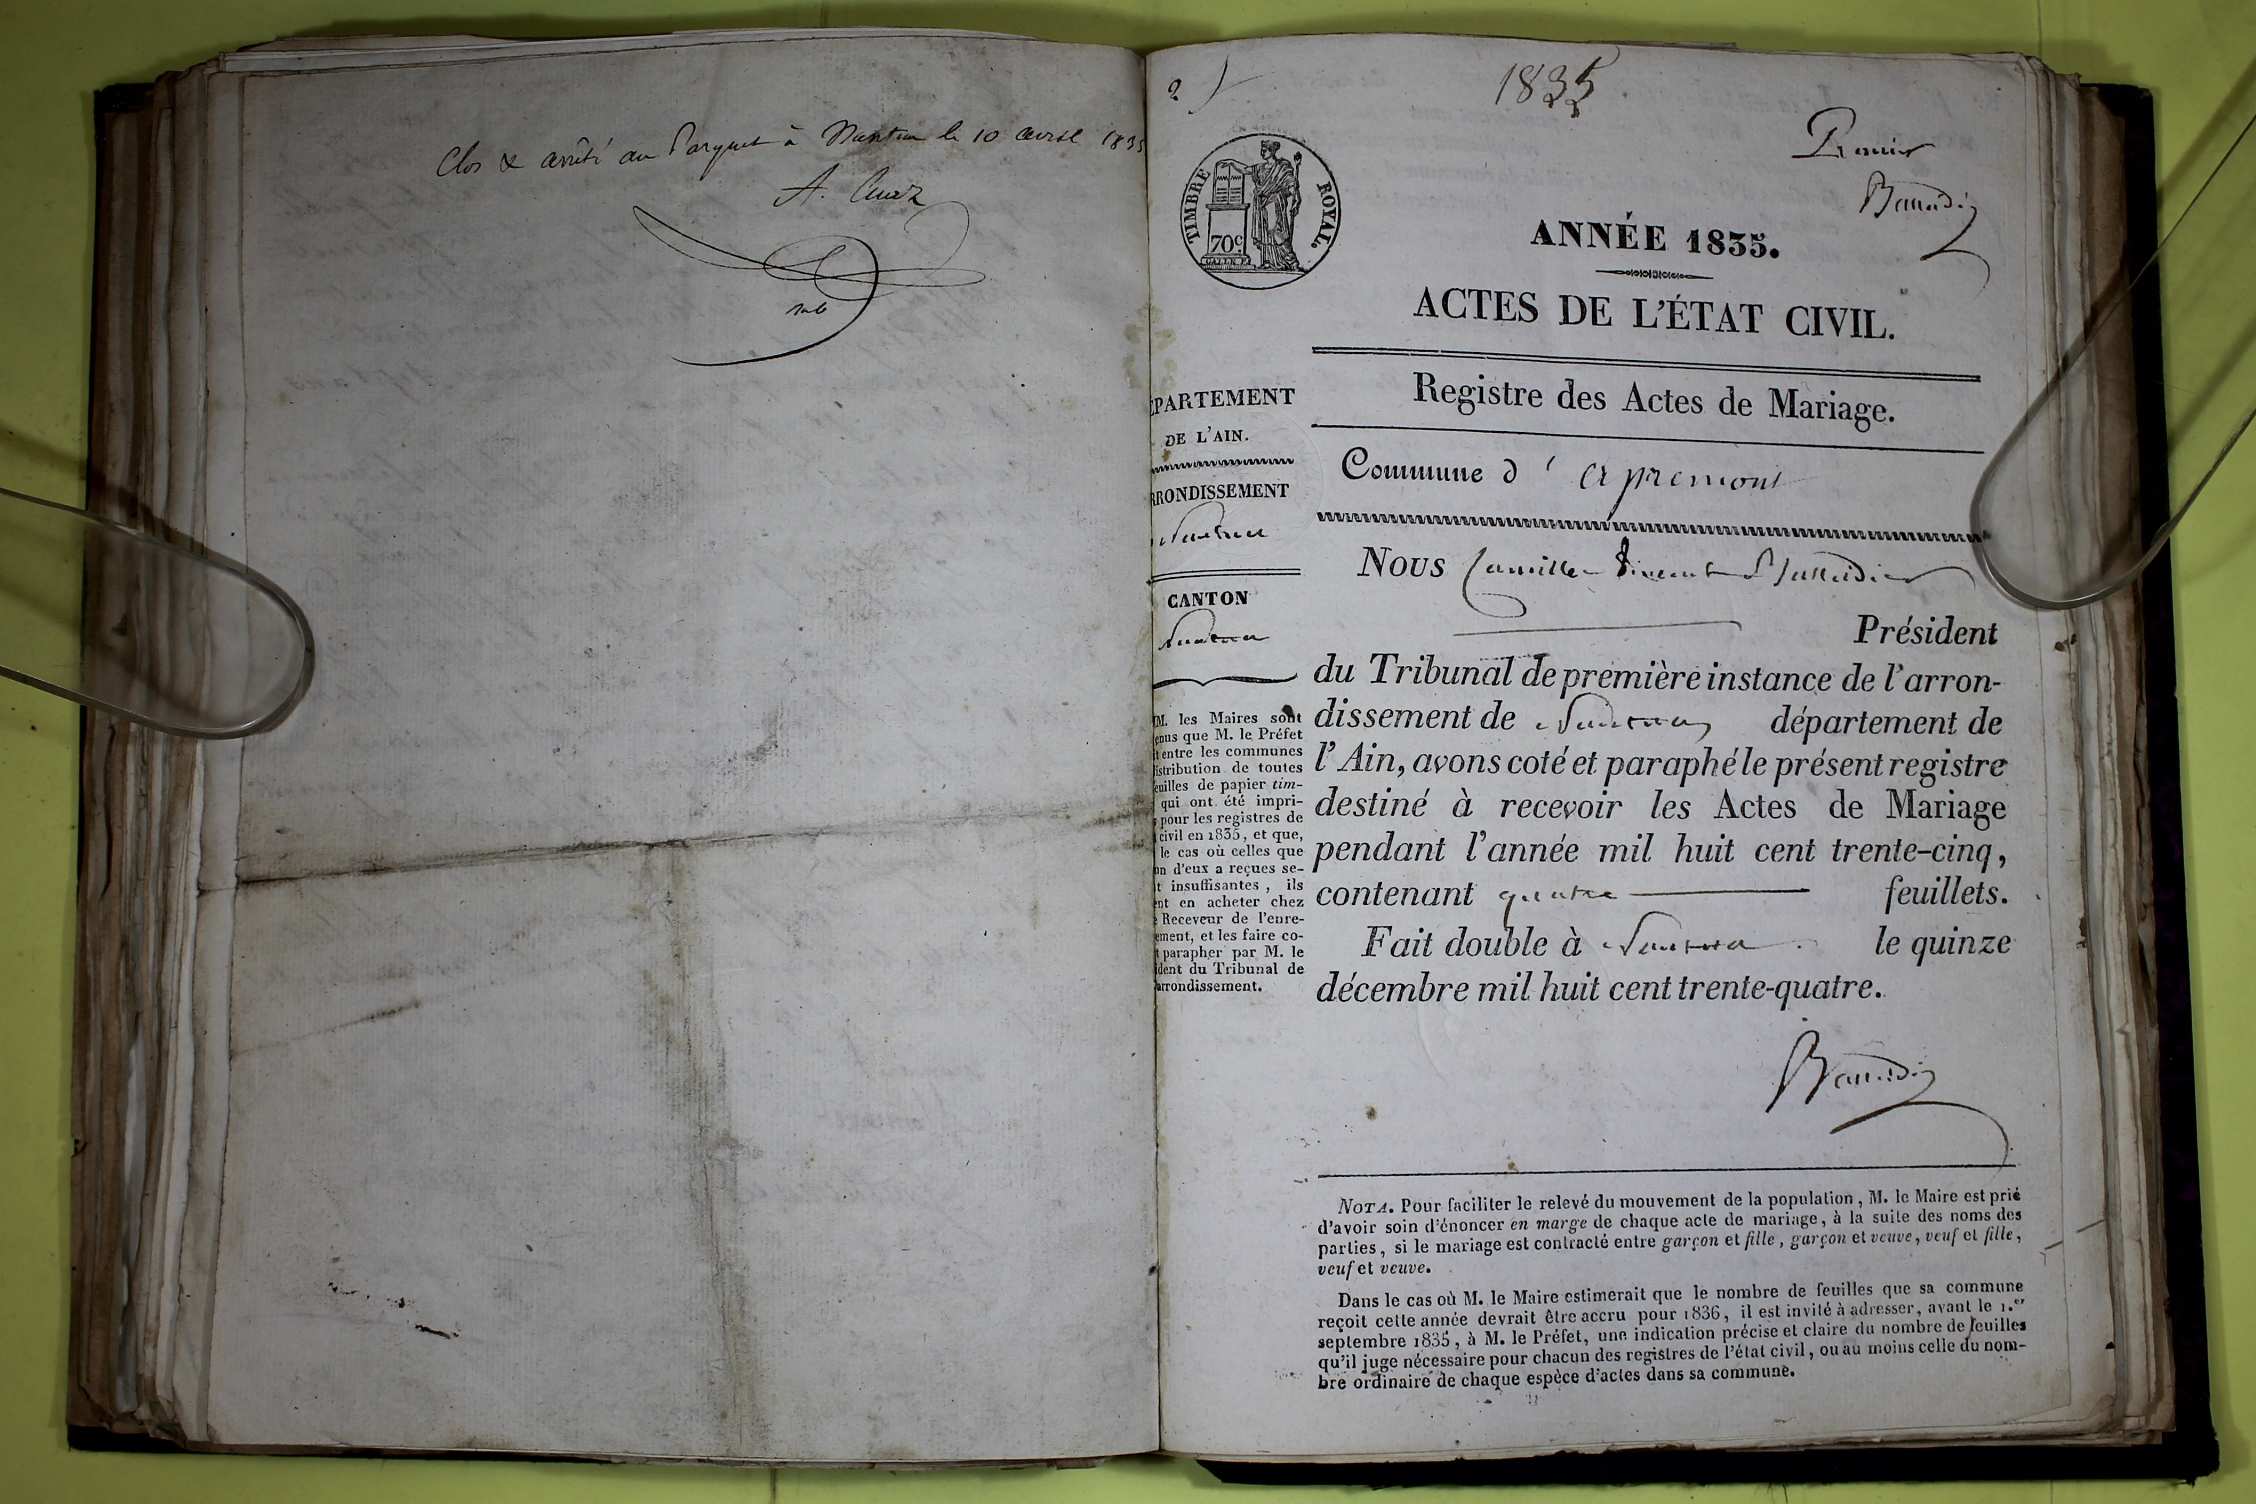 Clos & arrêté au Parquet à Nantua le 10 avril 1835
A. Cuaz
2
1835
Premier
Baudin
TIMBRE ROYAL.
70c.
ANNÉE 1835.
ACTES DE L'ÉTAT CIVIL.
Registre des Actes de Mariage.
Commune d'apremont
EPARTEMENT
DE L'AIN.
RRONDISSEMENT
Nantua
CANTON
Nantua
M. les Maires sont
enus que M. le Préfet
t entre les communes
istribution de toutes
euilles de papier tim-
qui ont été impri-
pour les registres de
civil en 1835, et que,
le cas où celles que
un d'eux a reçues se-
t insuffisantes, ils
nt en acheter chez
Receveur de l'enre-
ement, et les faire co-
t parapher par M. le
ident du Tribunal de
arrondissement.
Nous Camille Vincent
Président
du Tribunal de première instance de l'arron-
dissement de Nantua département de
l'Ain, avons coté et paraphé le présent registre
destiné à recevoir les Actes de Mariage
pendant l'année mil huit cent trente-cinq,
contenant quatre feuillets.
Fait double à Nantua le quinze
décembre mil huit cent trente-quatre.
Baudin
NOTA. Pour faciliter le relevé du mouvement de la population, M. le Maire est prié
d'avoir soin d'énoncer en marge de chaque acte de mariage, à la suite des noms des
parties, si le mariage est contracté entre garçon et fille, garçon et veuve, veuf et fille,
veuf et veuve.
Dans le cas où M. le Maire estimerait que le nombre de feuilles que sa commune
reçoit cette année devrait être accru pour 1836, il est invité à adresser, avant le 1.er
septembre 1835, à M. le Préfet, une indication précise et claire du nombre de feuilles
qu'il juge nécessaire pour chacun des registres de l'état civil, ou au moins celle du nom-
bre ordinaire de chaque espèce d'actes dans sa commune.